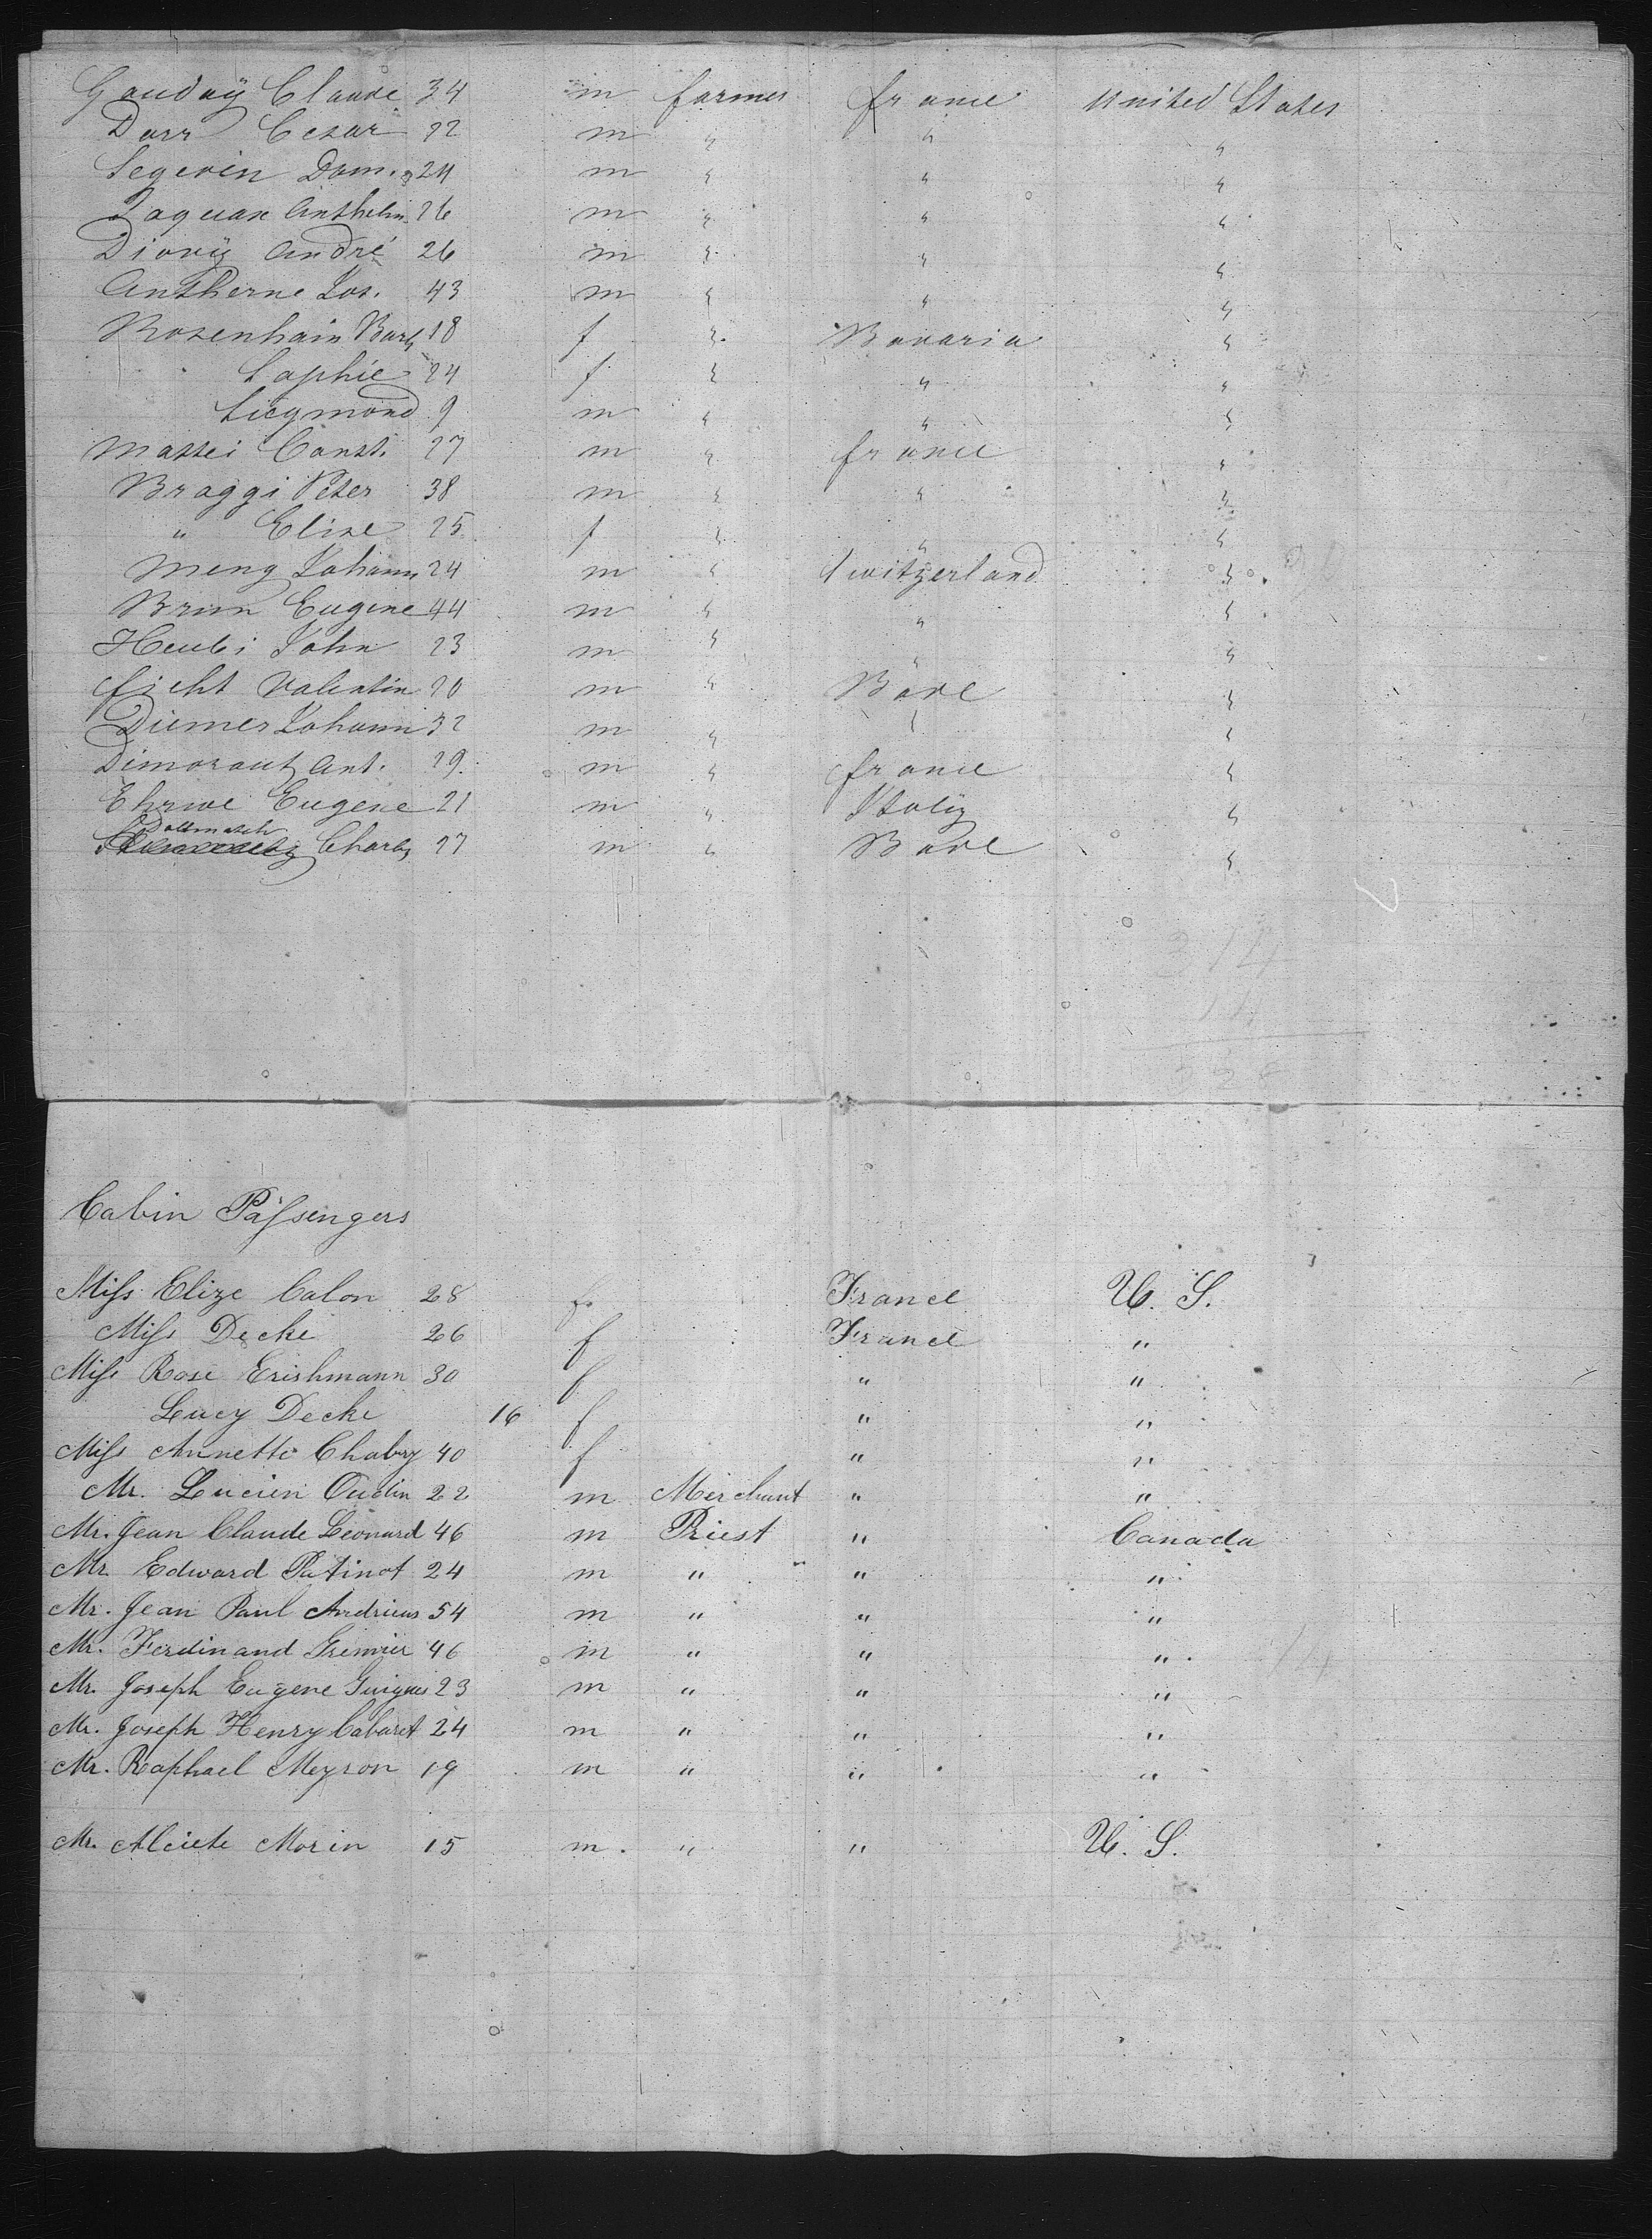 Gauday Claude 34 m farmer france United States
Darr Cesar 22 m " " "
Segevin Dom. 24 m " " "
Jaquan Anthelm 26 m " " "
Diony André 26 m " " "
Antherne Jos. 43 m " " "
Rosenhain Barb 18 f " Bavaria "
Saphie 24 f " " "
Siegmond 9 m " " "
Mattei Const. 27 m " france "
Braggi Peter 38 m " " "
" Elise 25 f " " "
Meng Johann 24 m " Switzerland "
Brun Eugene 44 m " " "
Heubi John 23 m " " "
ficht Valentin 20 m " Bade "
Diemer Johann 32 m " " "
Dimoraut Ant. 29 m " france "
Ehrwe Eugene 21 m " Italy "
Dallmatch
Charles 27 m " Bade "
314
14
328
Cabin Passengers
Miss Elize Calon 28 f France U. S.
Miss Decke 26 f France "
Miss Rose Erishmann 30 f " "
Lucy Decke 16 f " "
Miss Annette Chabry 40 f " "
Mr. Lucien Oudin 22 m Merchant " "
Mr. Jean Claude Leonard 46 m Priest " Canada
Mr. Edward Patinot 24 m " " "
Mr. Jean Paul Andrieus 54 m " " "
Mr. Ferdinand Grenier 46 m " " "
Mr. Joseph Eugene Guigues 23 m " " "
Mr. Joseph Henry Cabaret 24 m " " "
Mr. Raphael Meyson 19 m " " "
Mr. Alciete Morin 15 m " " U. S.